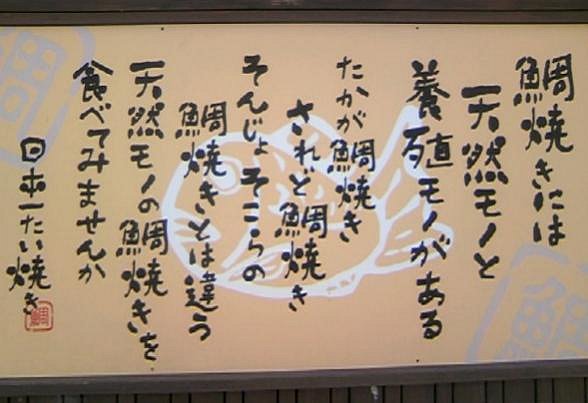 鯛焼きには
天然モノと
養殖モノがある
たかが鯛焼き
されど鯛焼き
そんじょそこらの
鯛焼きとは違う
天然モノの鯛焼きを
食べてみませんか
日本一たい焼き
鯛
鯛
鯛